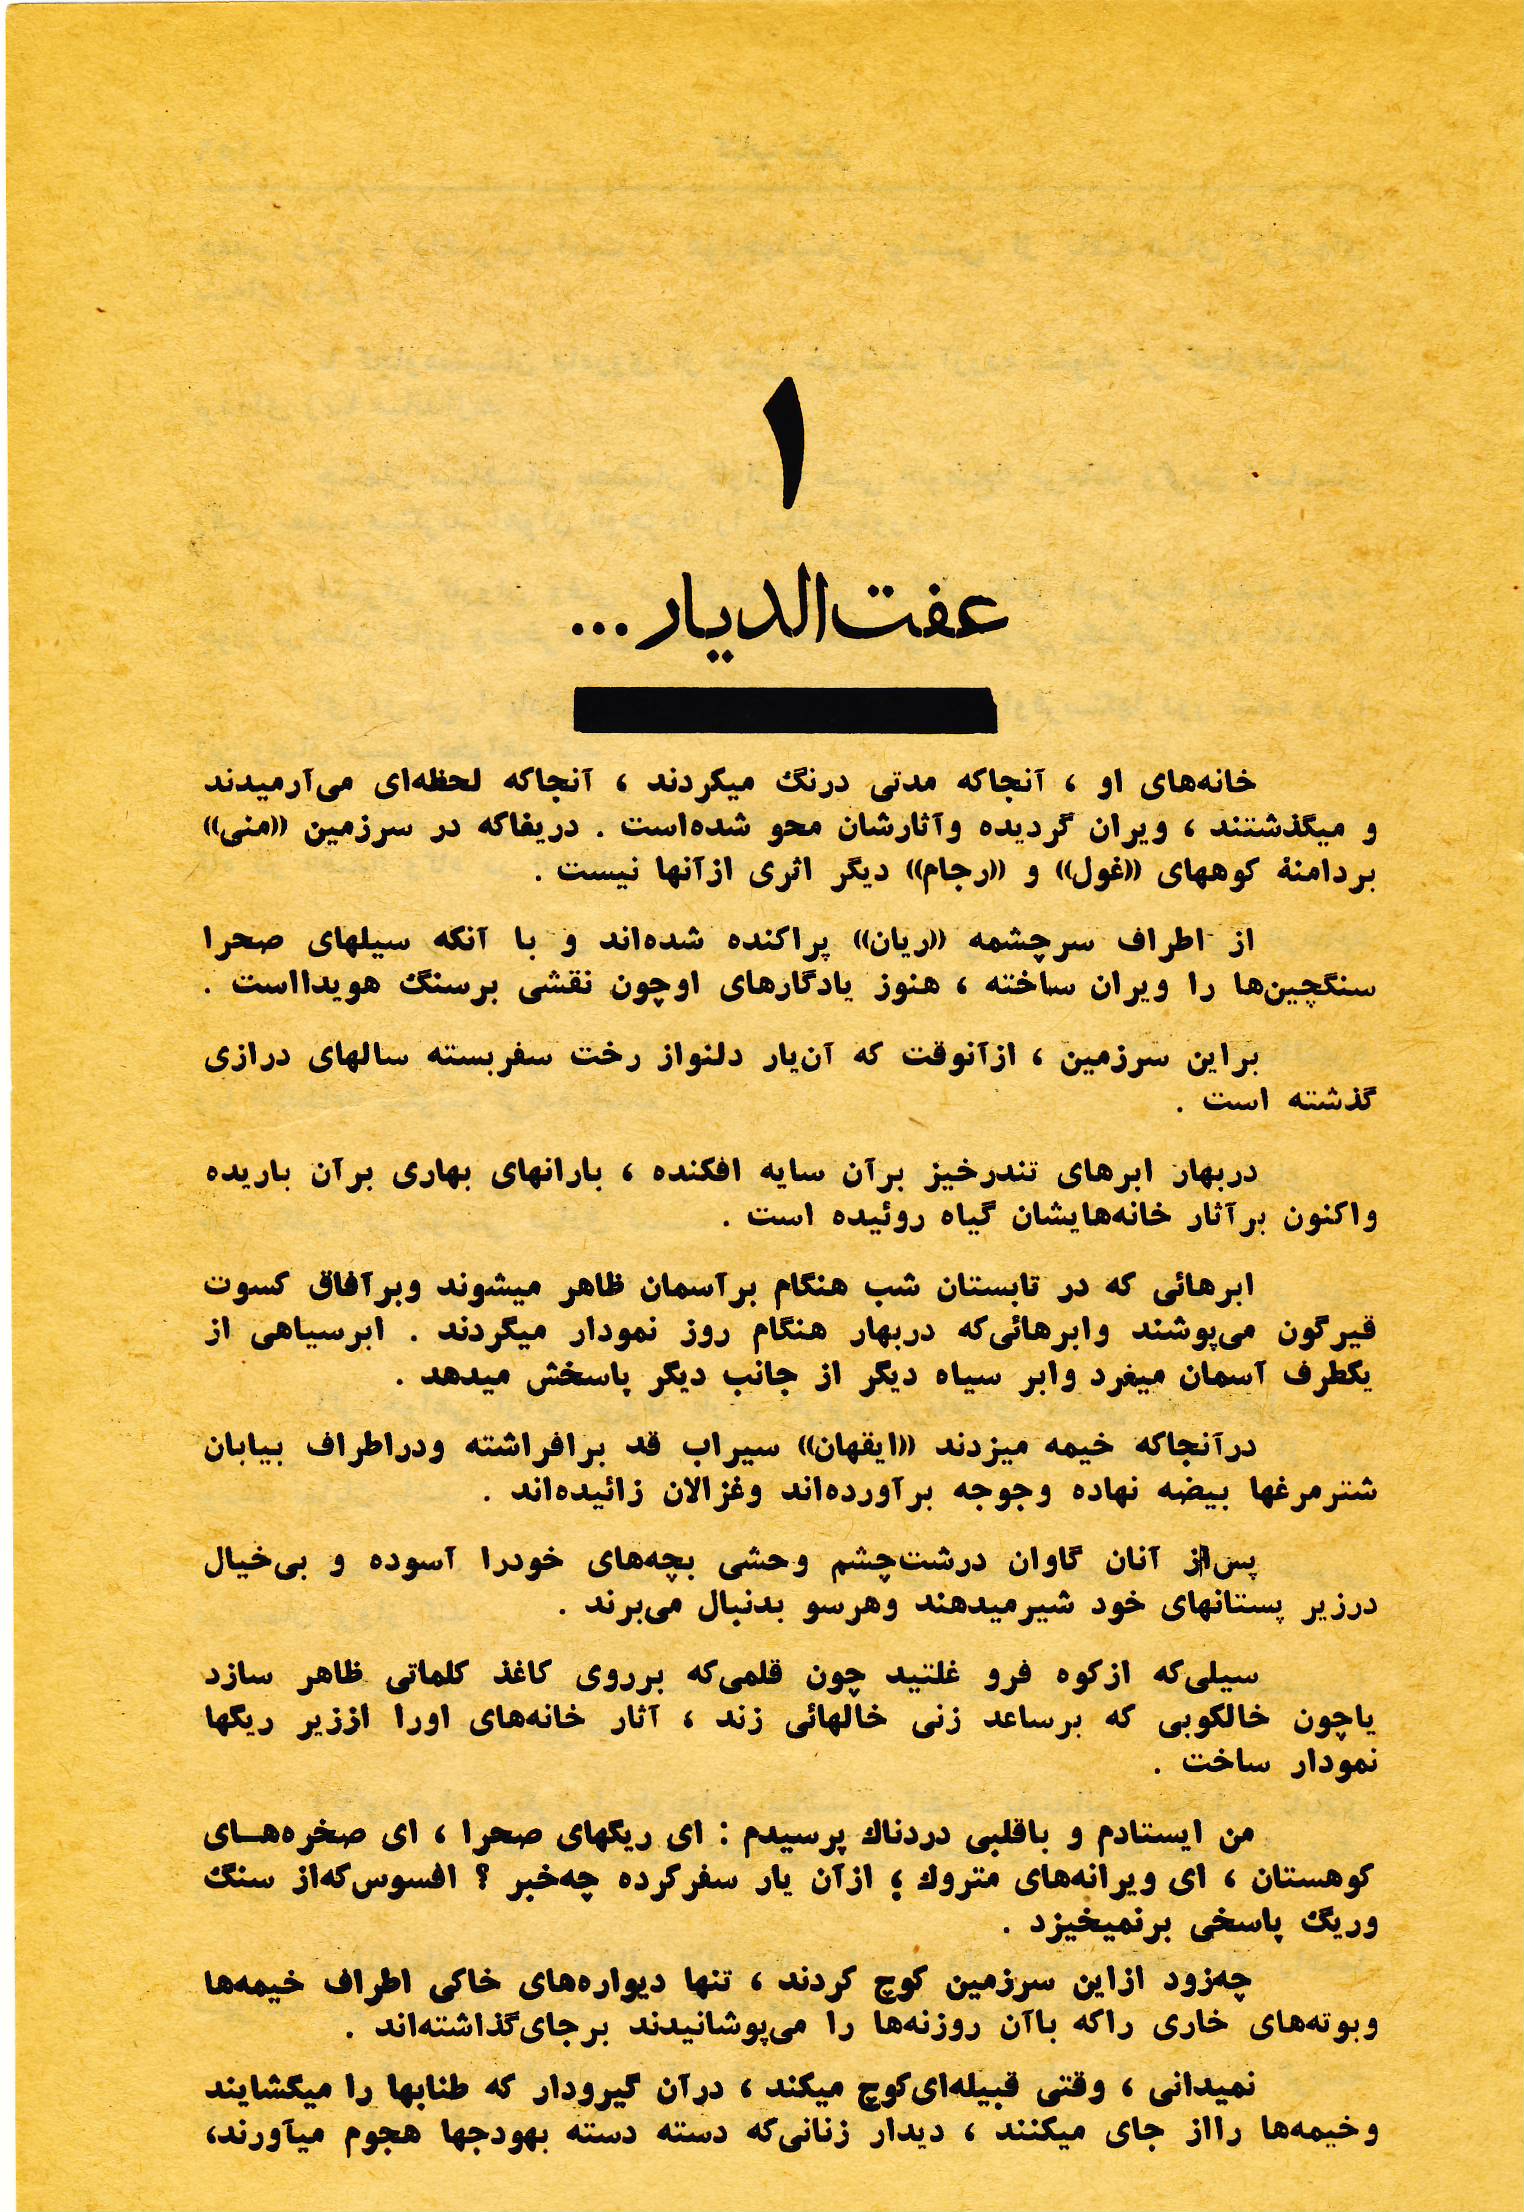 ۱
عفت‌الدیار...
خانه‌های او ، آنجاکه مدتی درنگ میکردند ، آنجاکه لحظه‌ای می‌آرمیدند
و میگذشتند ، ویران گردیده وآثارشان محو شده‌است . دریغاکه در سرزمین «منی»
بردامنهٔ کوههای «غول» و «رجام» دیگر اثری ازآنها نیست .
از اطراف سرچشمه «ریان» پراکنده شده‌اند و با آنکه سیلهای صحرا
سنگچین‌ها را ویران ساخته ، هنوز یادگارهای اوچون نقشی برسنگ هویدااست .
براین سرزمین ، ازآنوقت که آن‌یار دلنواز رخت سفربسته سالهای درازی
گذشته است .
دربهار ابرهای تندرخیز برآن سایه افکنده ، بارانهای بهاری برآن باریده
واکنون برآثار خانه‌هایشان گیاه روئیده است .
ابرهائی که در تابستان شب هنگام برآسمان ظاهر میشوند وبرآفاق کسوت
قیرگون می‌پوشند وابرهائی‌که دربهار هنگام روز نمودار میگردند . ابرسیاهی از
یکطرف آسمان میغرد وابر سیاه دیگر از جانب دیگر پاسخش میدهد .
درآنجاکه خیمه میزدند «ایقهان» سیراب قد برافراشته ودراطراف بیابان
شترمرغها بیضه نهاده وجوجه برآورده‌اند وغزالان زائیده‌اند .
پس‌از آنان گاوان درشت‌چشم وحشی بچه‌های خودرا آسوده و بی‌خیال
درزیر پستانهای خود شیرمیدهند وهرسو بدنبال می‌برند .
سیلی‌که ازکوه فرو غلتید چون قلمی‌که برروی کاغذ کلماتی ظاهر سازد
یاچون خالکوبی که برساعد زنی خالهائی زند ، آثار خانه‌های اورا اززیر ریگها
نمودار ساخت .
من ایستادم و باقلبی دردناك پرسیدم : ای ریگهای صحرا ، ای صخره‌هـای
کوهستان ، ای ویرانه‌های متروك ؛ ازآن یار سفرکرده چه‌خبر ؟ افسوس‌که‌از سنگ
وریگ پاسخی برنمیخیزد .
چه‌زود ازاین سرزمین کوچ کردند ، تنها دیواره‌های خاکی اطراف خیمه‌ها
وبوته‌های خاری راکه باآن روزنه‌ها را می‌پوشانیدند برجای‌گذاشته‌اند .
نمیدانی ، وقتی قبیله‌ای‌کوچ میکند ، درآن گیرودار که طنابها را میگشایند
وخیمه‌ها رااز جای میکنند ، دیدار زنانی‌که دسته دسته بهودجها هجوم میآورند،